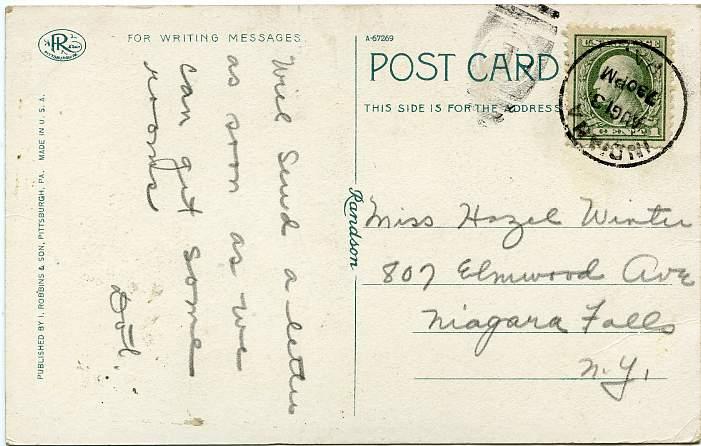 FOR WRITING MESSAGES.
A-67269
POST CARD
THIS SIDE IS FOR THE ADDRESS
PR
PITTSBURGH PA.
PUBLISHED BY I. ROBBINS & SON, PITTSBURGH, PA. MADE IN U. S. A.
Will send a letter
as soon as we
can get some
rooms
Dot.
Randson
Miss Hazel Winter
807 Elmwood Ave
Niagara Falls
N.Y.
AUG 13
7 30 PM